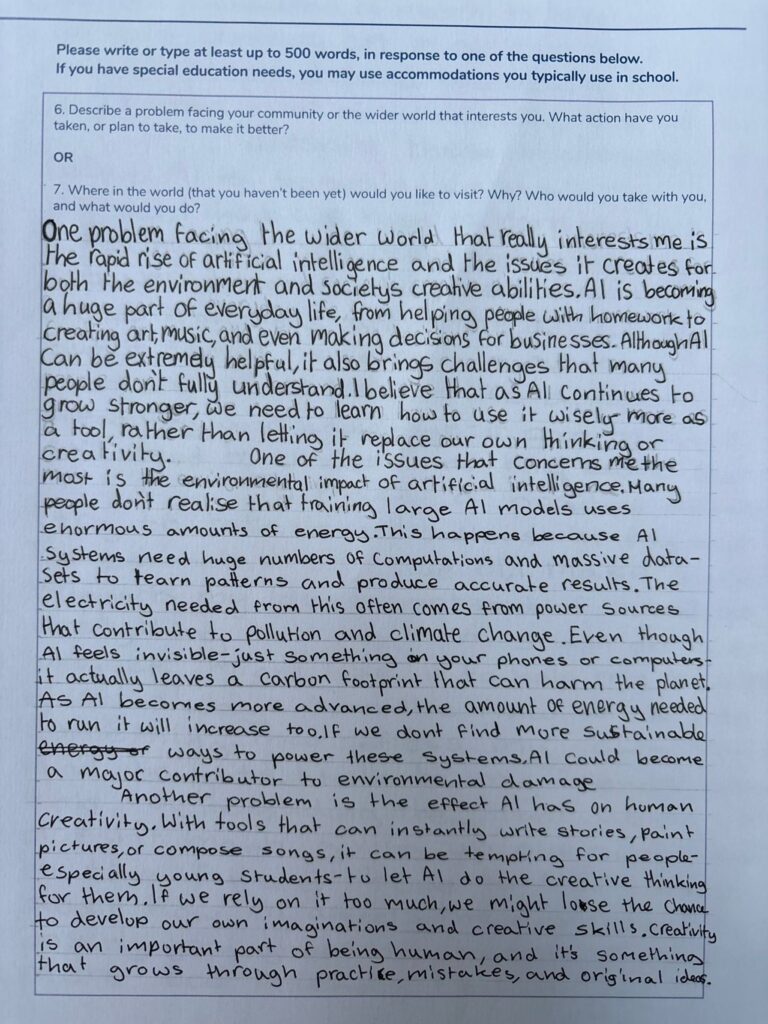 Please write or type at least up to 500 words, in response to one of the questions below.
If you have special education needs, you may use accommodations you typically use in school.
6. Describe a problem facing your community or the wider world that interests you. What action have you
taken, or plan to take, to make it better?
OR
7. Where in the world (that you haven't been yet) would you like to visit? Why? Who would you take with you,
and what would you do?
One problem facing the wider world that really interests me is
the rapid rise of artificial intelligence and the issues it creates for
both the environment and societys creative abilities. AI is becoming
a huge part of everyday life, from helping people with homework to
creating art, music, and even making decisions for businesses. Although AI
can be extremely helpful, it also brings challenges that many
people don't fully understand. I believe that as AI continues to
grow stronger, we need to learn how to use it wisely more as
a tool, rather than letting it replace our own thinking or
creativity. One of the issues that concerns me the
most is the environmental impact of artificial intelligence. Many
people don't realise that training large AI models uses
enormous amounts of energy. This happens because AI
systems need huge numbers of computations and massive data-
sets to learn patterns and produce accurate results. The
electricity needed from this often comes from power sources
that contribute to pollution and climate change. Even though
AI feels invisible-just something on your phones or computers-
it actually leaves a carbon footprint that can harm the planet.
As AI becomes more advanced, the amount of energy needed
to run it will increase too. If we dont find more sustainable
energy or ways to power these systems, AI could become
a major contributor to environmental damage
Another problem is the effect AI has on human
creativity. With tools that can instantly write stories, paint
pictures, or compose songs, it can be tempting for people-
especially young students-to let AI do the creative thinking
for them. If we rely on it too much, we might loose the chance
to develop our own imaginations and creative skills. Creativity
is an important part of being human, and it's something
that grows through practice, mistakes, and original ideas.